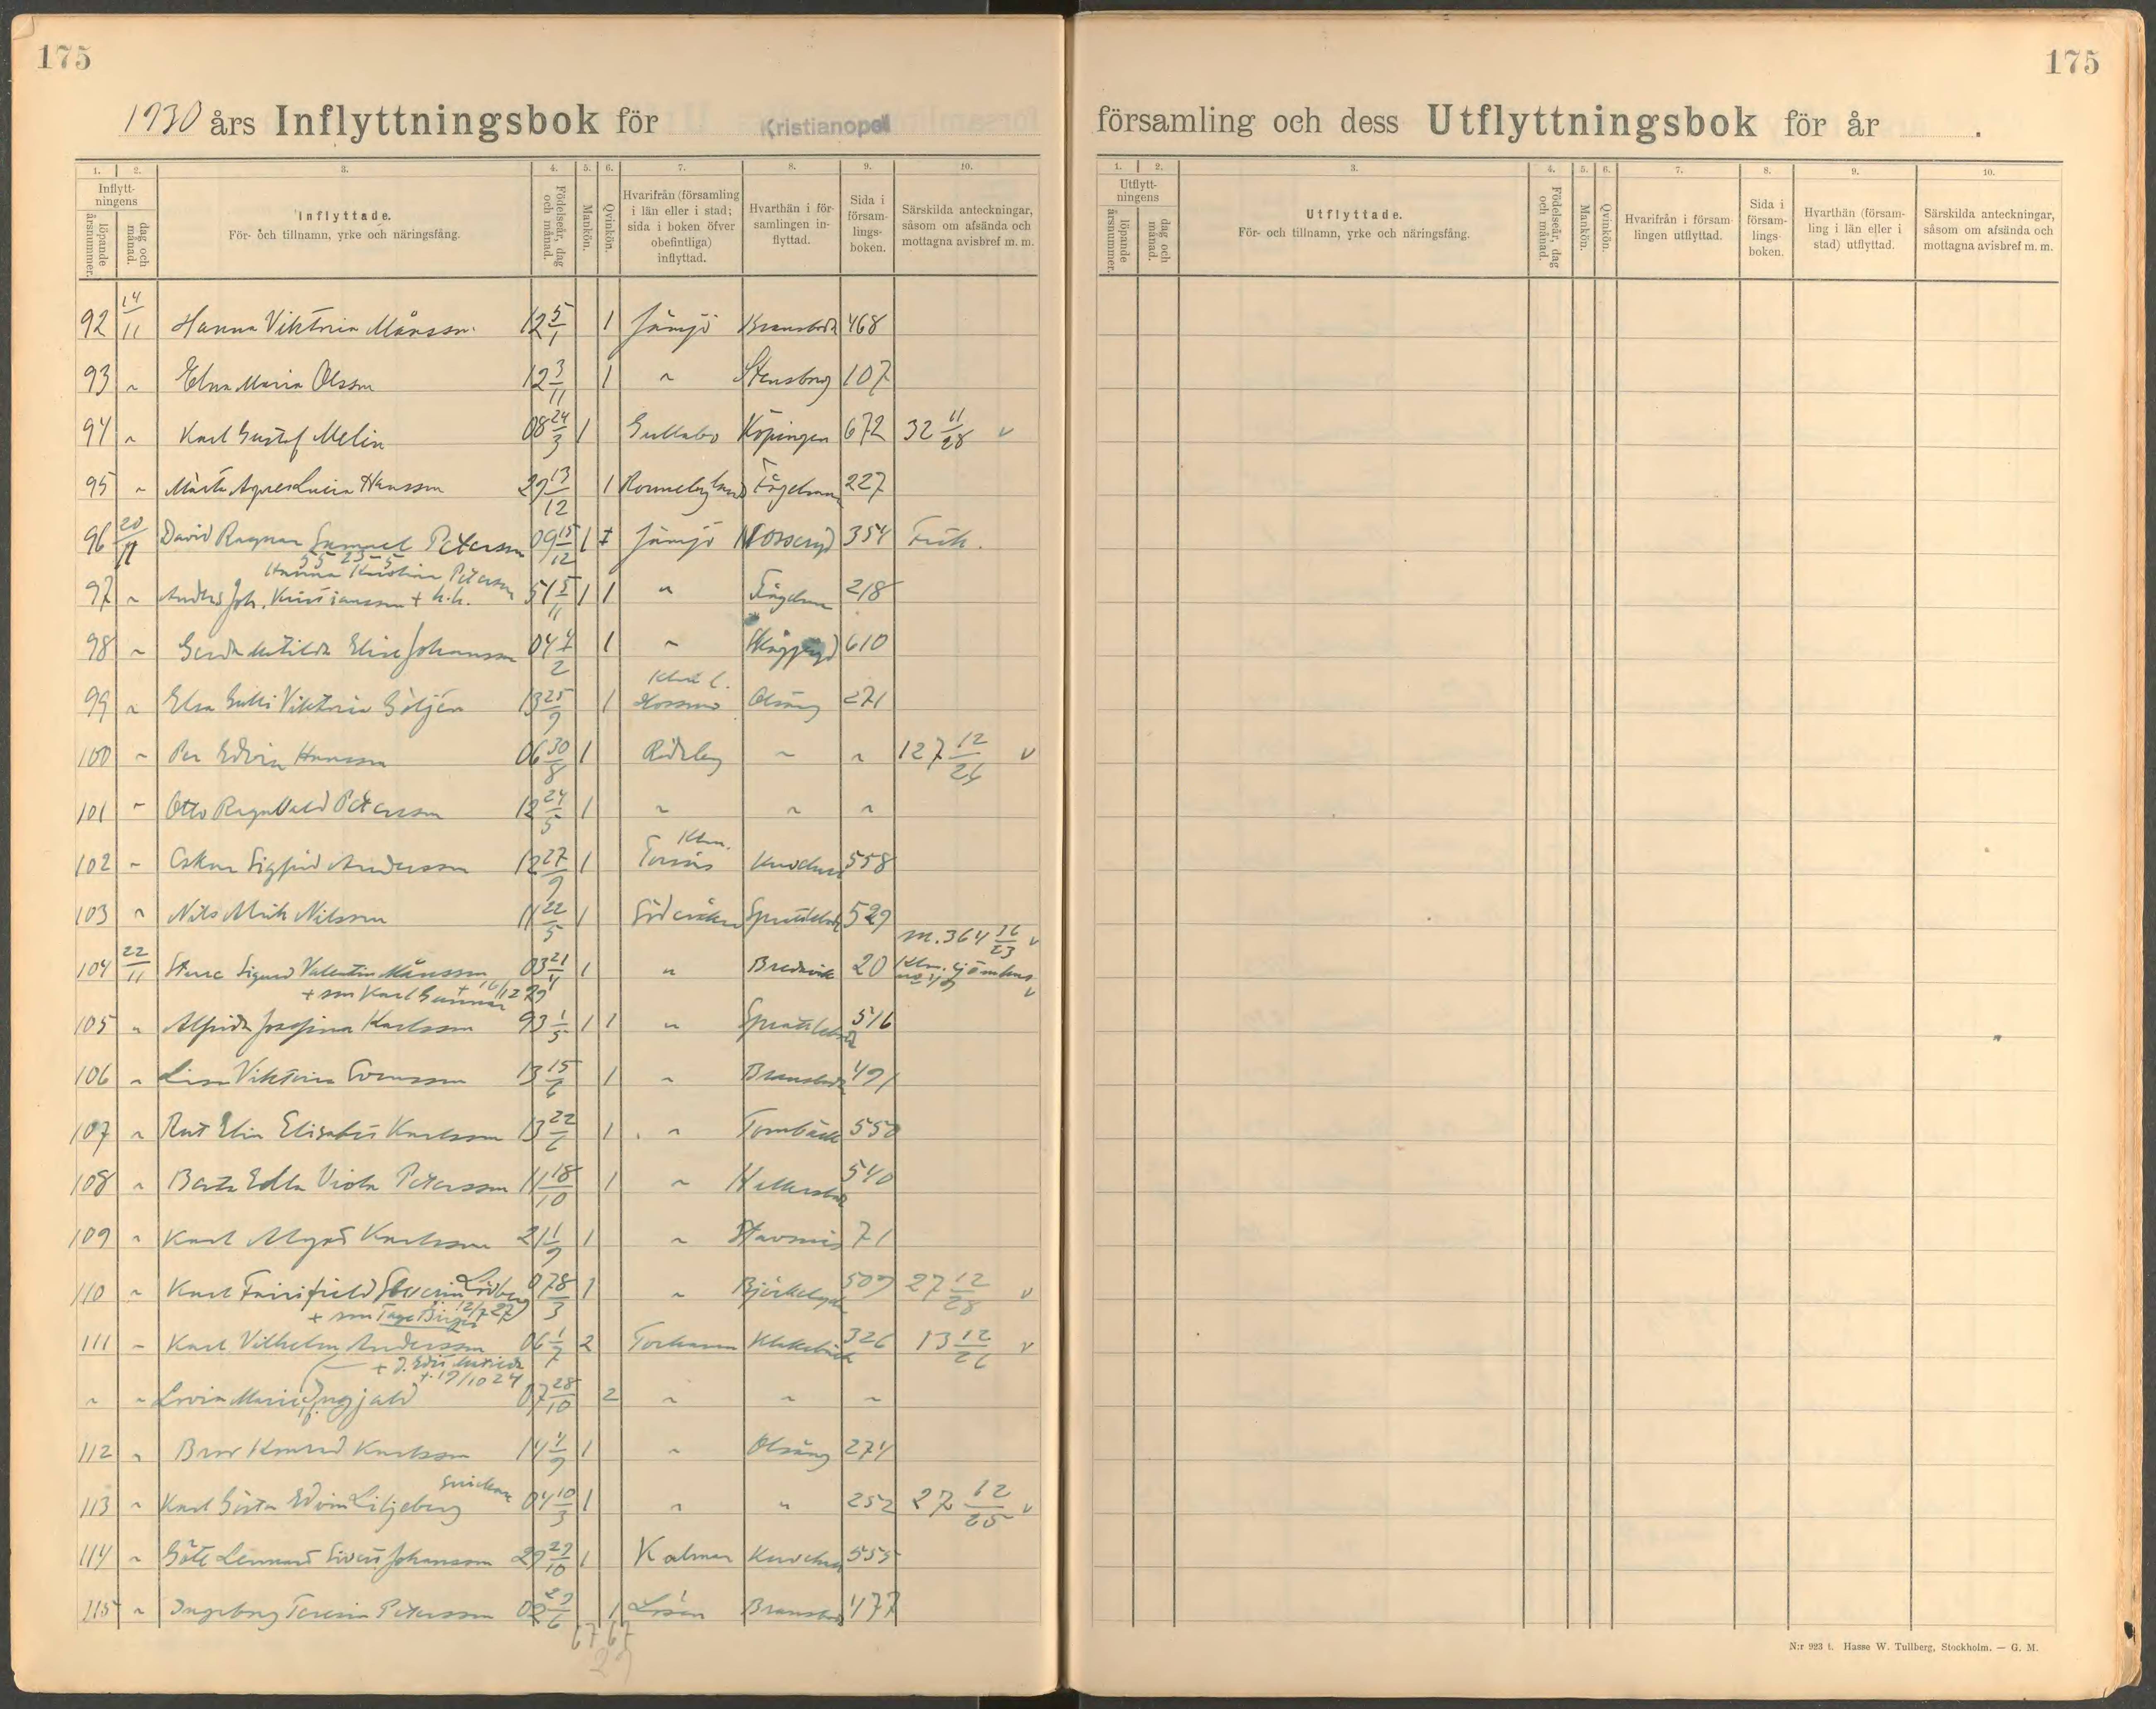 175
1930 års Inflyttningsbok för Kristianopel
1. 2. 3. 4. 5. 6. 7. 8. 9. 10.
Inflyttningens
löpande årsnummer.
dag och månad.
Inflyttade.
För- och tillnamn, yrke och näringsfång.
Födelseår, dag och månad.
Mankön.
Qvinkön.
Hvarifrån (församling i län eller i stad; sida i boken öfver obefintliga) inflyttad.
Hvarthän i församlingen inflyttad.
Sida i församlingsboken.
Särskilda anteckningar, såsom om afsända och mottagna avisbref m. m.
92 14/11 Hanna Viktoria Månsson 12 5/1 1 Jämjö 468
93 " Elna Maria Olsson 12 3/11 1 " Stensborg 107
94 " Karl Gustof Melin 08 24/3 1 Gullabo Köpingen 672 32 11/28 v
95 " Märta Agnes Lucia Hansson 29 13/12 1 Ronneby Fågelmara 227
96 20/11 David Ragnar Samuel Petersson 09 15/12 1 Jämjö 354
55 23-5
Hanna Kristina Petersson
97 " Anders Joh. Kristiansson + h.h. 51 5/11 1 1 " Fågelmara 218
98 " Gerda Matilda Elise Johansson 04 4/2 1 " 610
99 " Elsa Gulli Viktoria Göljén 13 25/9 1 Klm l. Hossmo Olsäng 271
100 " Per Edvin Hansson 06 30/8 1 Rödeby " " 127 12/26 v
101 " Otto Ragnvald Petersson 12 24/5 1 " " "
102 " Oskar Sigfrid Andersson 12 27/9 1 Klm. Torsås 558
103 " Nils Erik Nilsson 11 22/5 1 Söderåkra 529
104 22/11 Sture Sigurd Valentin Månsson 03 21/4 1 " Bredavik 20 m. 364 v
+ son Karl Gunnar + 16/12 29
105 " Alfrida Josefina Karlsson 93 1/5 1 1 " 516
106 " Lisa Viktoria Svensson 13 15/6 1 " 491
107 " Rut Elin Elisabet Karlsson 13 22/6 1 " Tornbäck 550
108 " Berta Edla Viola Petersson 11 18/10 1 " 540
109 " Karl Algot Karlsson 21 1/9 1 " Stavsnäs 71
110 " Karl Lidberg 07 8/3 1 " 509 27 12/28 v
+ son Tage Birger 12/7 27
111 " Karl Vilhelm Andersson 06 1/7 2 Torhamn 326 13 12/26 v
+ 19/10 24
" " Maria Ingjald 07 28/10 2 " " "
112 " Bror Konrad Karlsson 14 4/9 1 " Olsäng 274
113 " Karl Gösta Edvin Liljeberg snickare 04 10/3 1 " " 252 27 12/25 v
114 " Göte Lennart Sivert Johansson 29 29/10 1 Kalmar 555
115 " Ingeborg Teresia Petersson 02 29/6 1 Lösen 477
67 67
29
175
församling och dess Utflyttningsbok för år .
1. 2. 3. 4. 5. 6. 7. 8. 9. 10.
Utflyttningens
löpande årsnummer.
dag och månad.
Utflyttade.
För- och tillnamn, yrke och näringsfång.
Födelseår, dag och månad.
Mankön.
Qvinkön.
Hvarifrån i församlingen utflyttad.
Sida i församlingsboken.
Hvarthän (församling i län eller i stad) utflyttad.
Särskilda anteckningar, såsom om afsända och mottagna avisbref m. m.
N:r 923 t. Hasse W. Tullberg, Stockholm. — G. M.